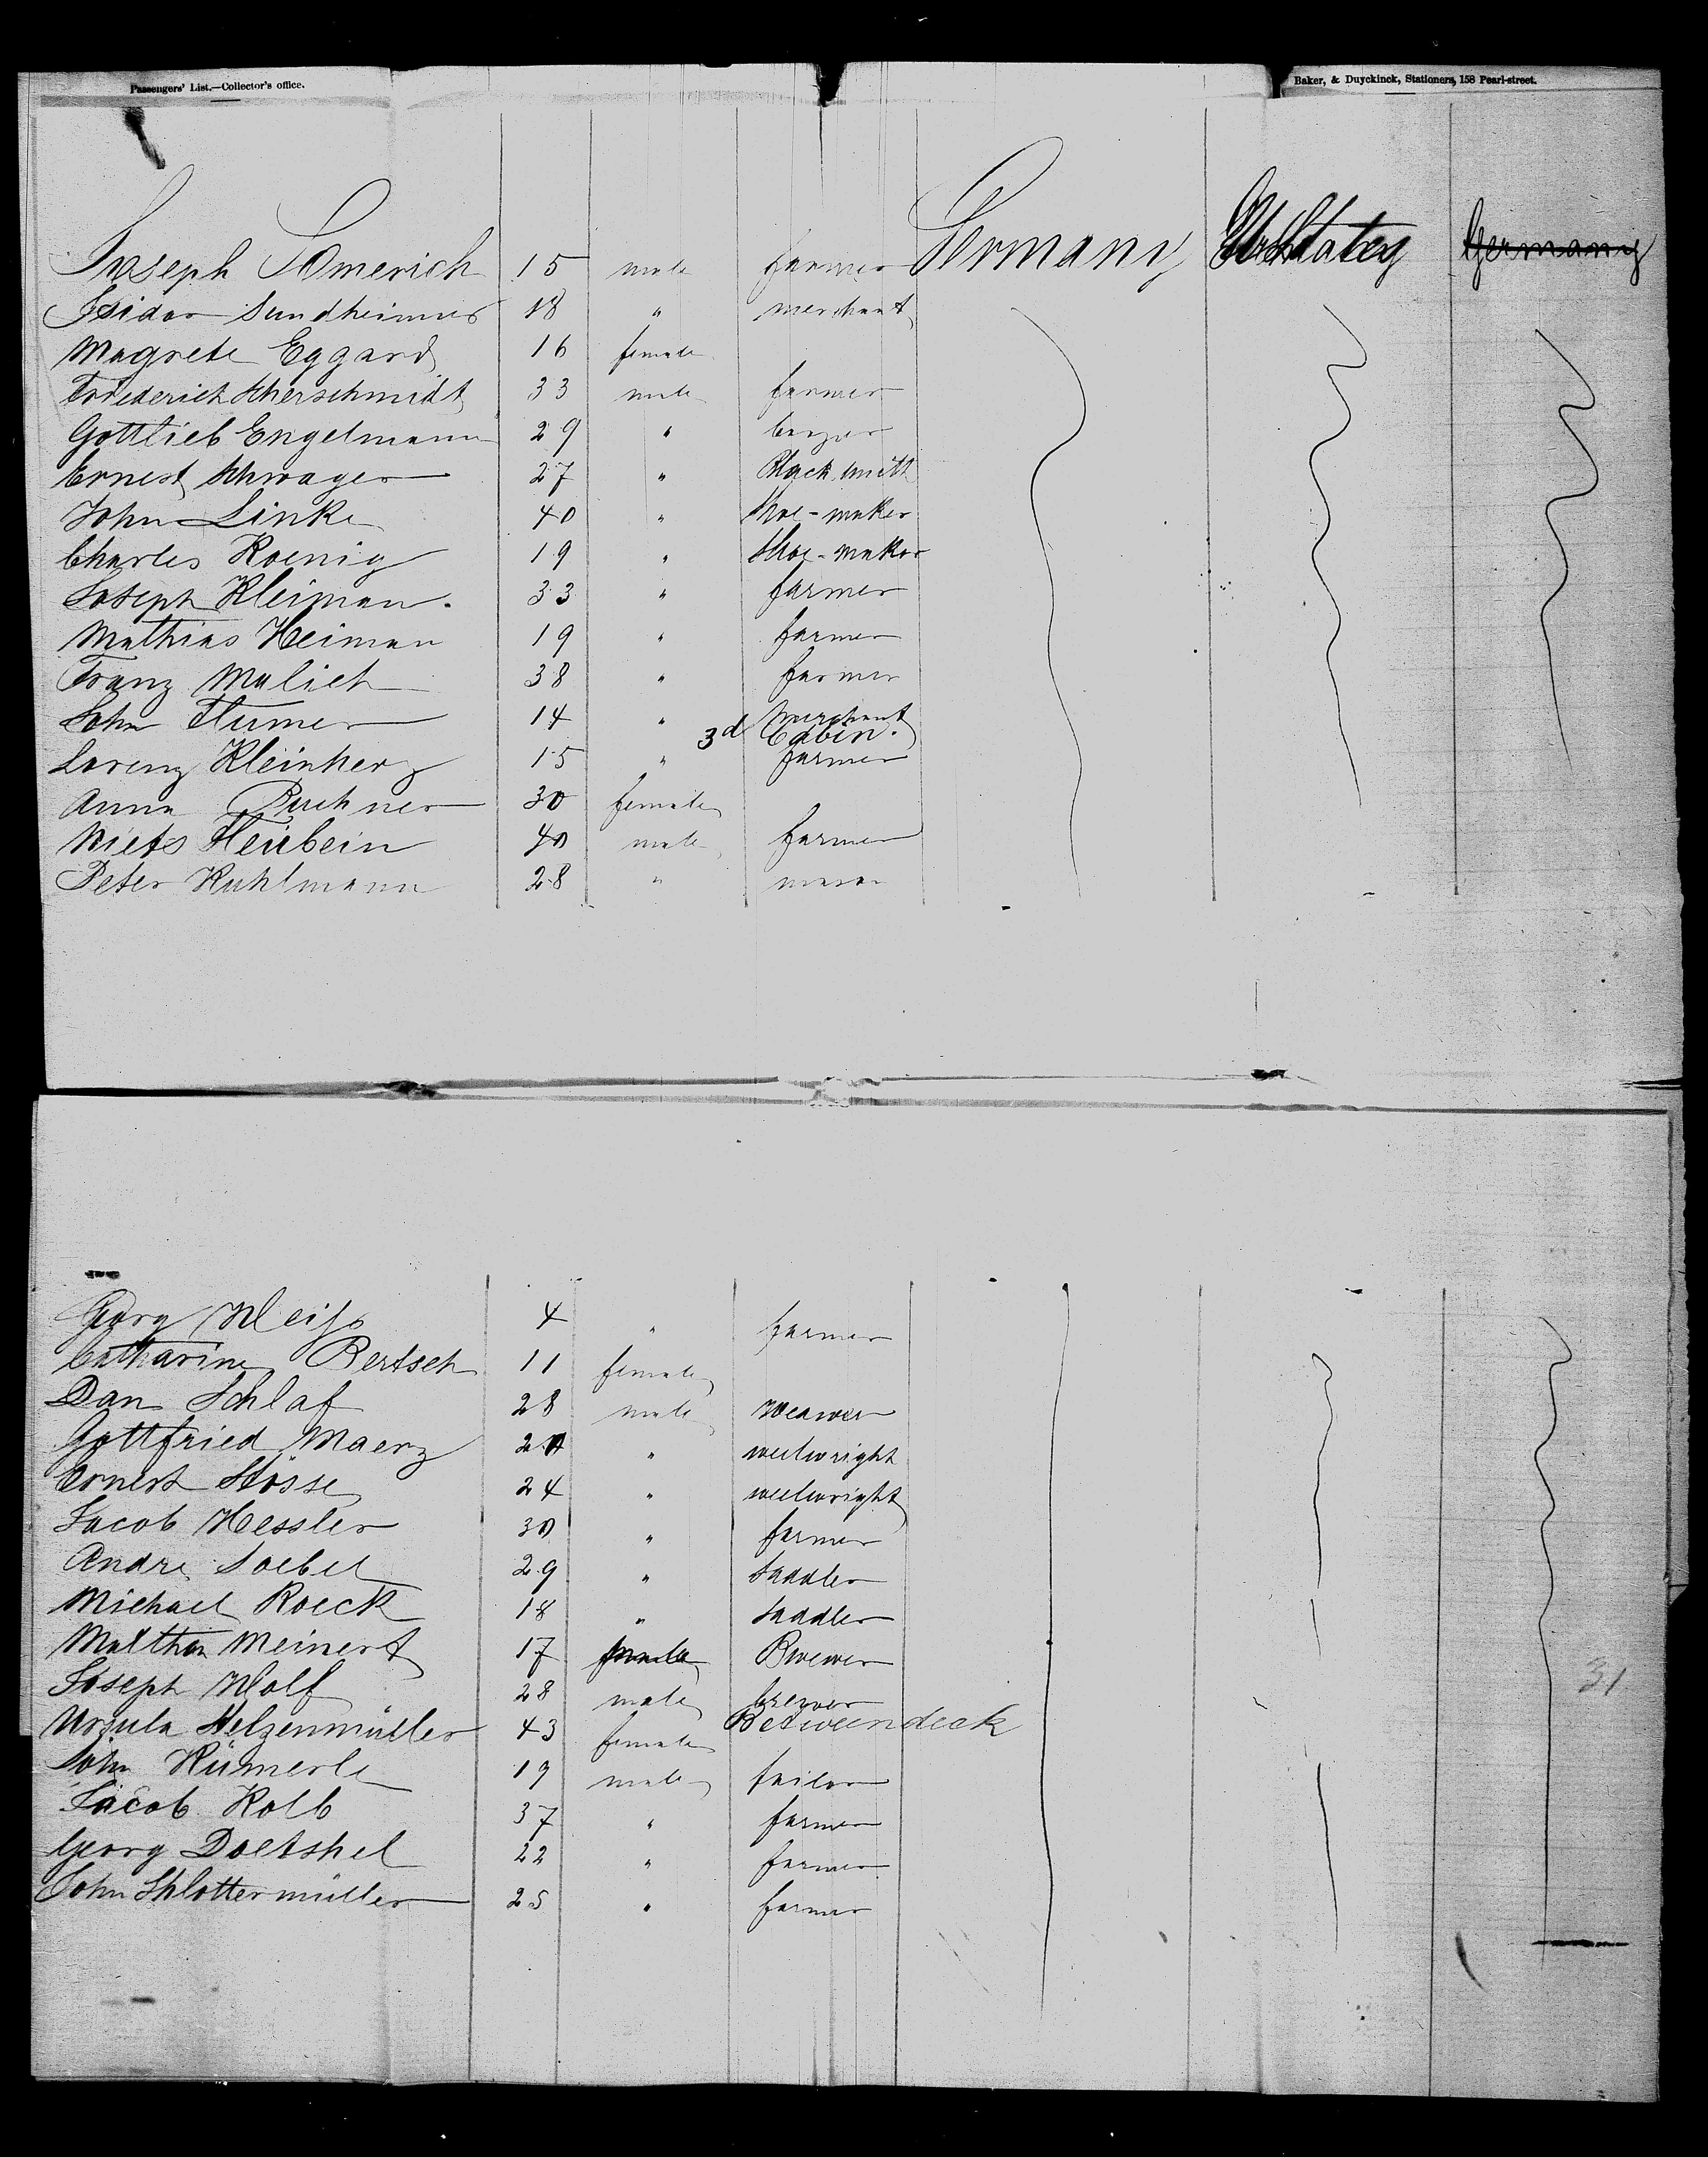 Passengers' List.—Collector's office. Baker, & Duyckinck, Stationers, 158 Pearl-street.
Joseph Somerich 15 male farmer Germany U. States Germany
Isidor Sundheimer 18 " merchant
Magrete Eggard 16 female
Friederich Scherschmidt 33 male farmer
Gottlieb Engelmann 29 "
Ernest Schwager 27 " Black smith
John Linke 40 " Shoe-maker
Charles Koenig 19 " Shoe-maker
Joseph Kleiman. 33 " farmer
Mathias Heiman 19 " farmer
Franz Malich 38 " farmer
John Turner 14 " merchant
3d Cabin.
Lorenz Kleinherz 15 " farmer
Anna Buchner 30 female
Niets Heirbein 40 male farmer
Peter Kuhlmann 28 " mason
Georg Weiss 4 " farmer
Catharine Bertsch 11 female
Dan Schlaf 28 male weawer
Gottfried Maerz 20 " weelwright
Ernest Stösse 24 " weelwright
Jacob Hessler 30 " farmer
Andre Soebel 29 " Saddler
Michael Roeck 18 " Saddler
Malthan Meinert 17 female Brewer
Joseph Wolf 28 male brewer
Betweendeck
Ursula Helzenmüller 43 female
John Kümerle 19 male tailor
Jacob Kolb 37 " farmer
Georg Doetshel 22 " farmer
John Schlottermüller 25 " farmer
31